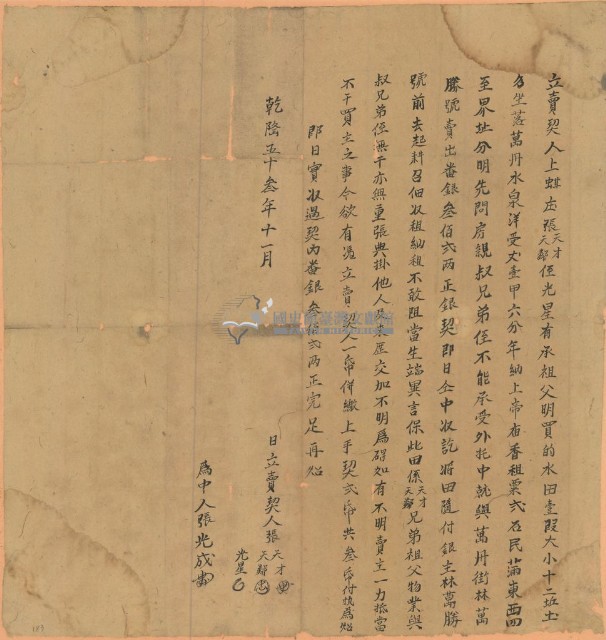 立賣契人上蚶庄張天才天鄰侄光星有承祖父明買的水田壹段大小十二坵土
名坐落萬丹水泉洋受丈壹甲六分年納上帝廟香租粟弍石民蒲東西四
至界址分明先問房親叔兄弟侄不能承受外托中就與萬丹街林萬
勝號賣出番銀叁佰弍両正銀契即日仝中收訖將田隨付銀主林萬勝
號前去起耕召佃收租納租不敢阻當生端異言保此田係天才天鄰兄弟祖父物業與
叔兄弟侄無干亦無重張典掛他人及來歷交加不明為碍如有不明賣主一力抵當
不干買主之事今欲有憑立賣契人一帋併繳上手契弍帋共叁帋付執為炤
即日實收過契內番銀叁佰弍両正完足再炤
乾隆五十叁年十一月
日立賣契人張天才天鄰光星
為中人張光成
國史館臺灣文獻館